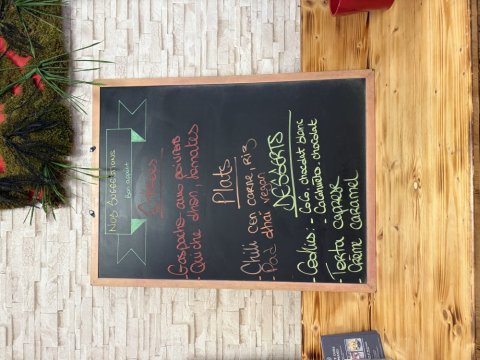 Nos Suggestions
Bon appétit
Entrées
- Gaspacho aux poivrons
- Quiche thon, tomates
Plats
- Chili con carne, riz
- Pad thaï vegan
DESSERTS
- Cookies: - Coco chocolat blanc
- Cacahuète chocolat
- Torta caprese
- Crème caramel